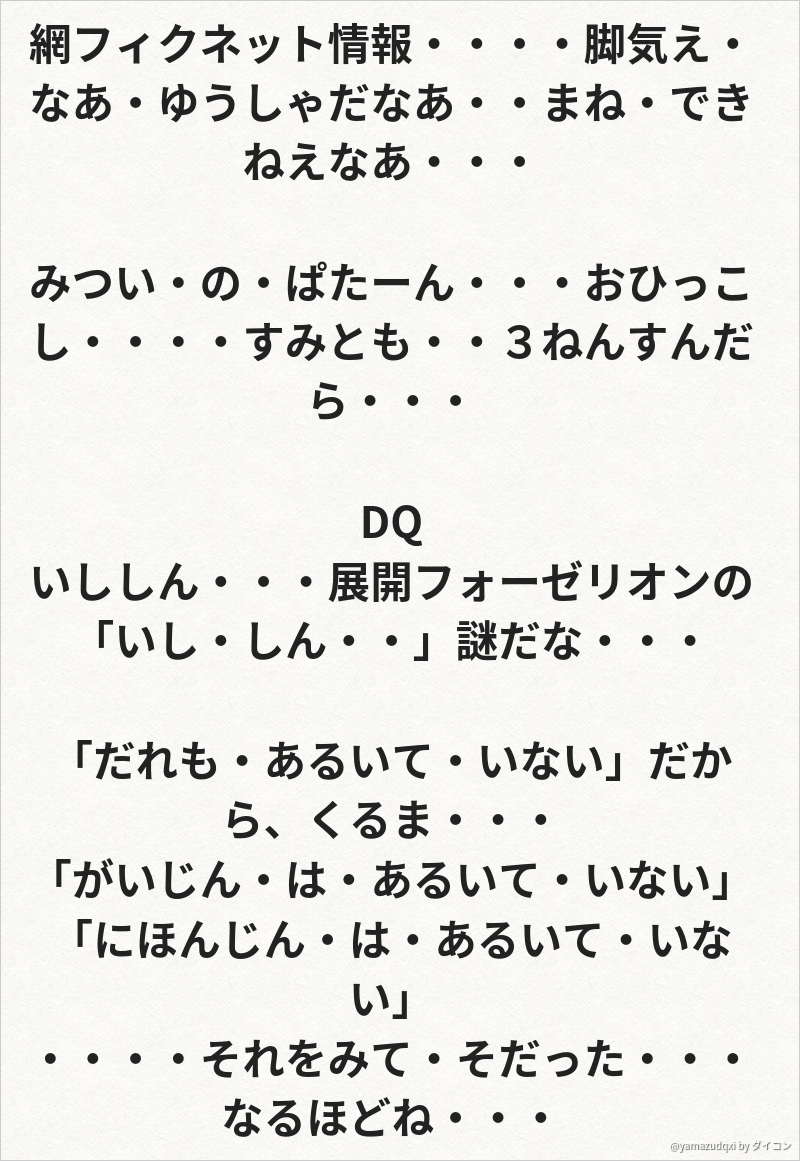 網フィクネット情報・・・・脚気え・
なあ・ゆうしゃだなあ・・まね・でき
ねえなあ・・・
みつい・の・ぱたーん・・・おひっこ
し・・・・すみとも・・３ねんすんだ
ら・・・
DQ
いししん・・・展開フォーゼリオンの
「いし・しん・・」謎だな・・・
「だれも・あるいて・いない」だか
ら、くるま・・・
「がいじん・は・あるいて・いない」
「にほんじん・は・あるいて・いな
い」
・・・・それをみて・そだった・・・
なるほどね・・・
@yamazudqxi by ダイコン